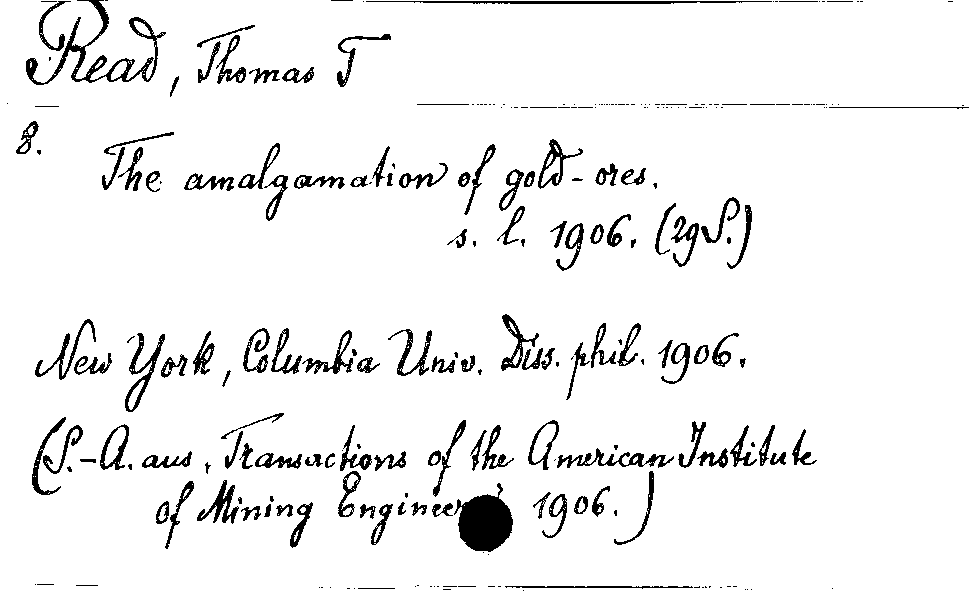 Read, Thomas T
8.
The amalgamation of gold-ores.
s. l. 1906. (29 S.)
New York, Columbia Univ. Diss. phil. 1906.
(S.-A. aus, Transactions of the American Institute
of Mining 1906.)